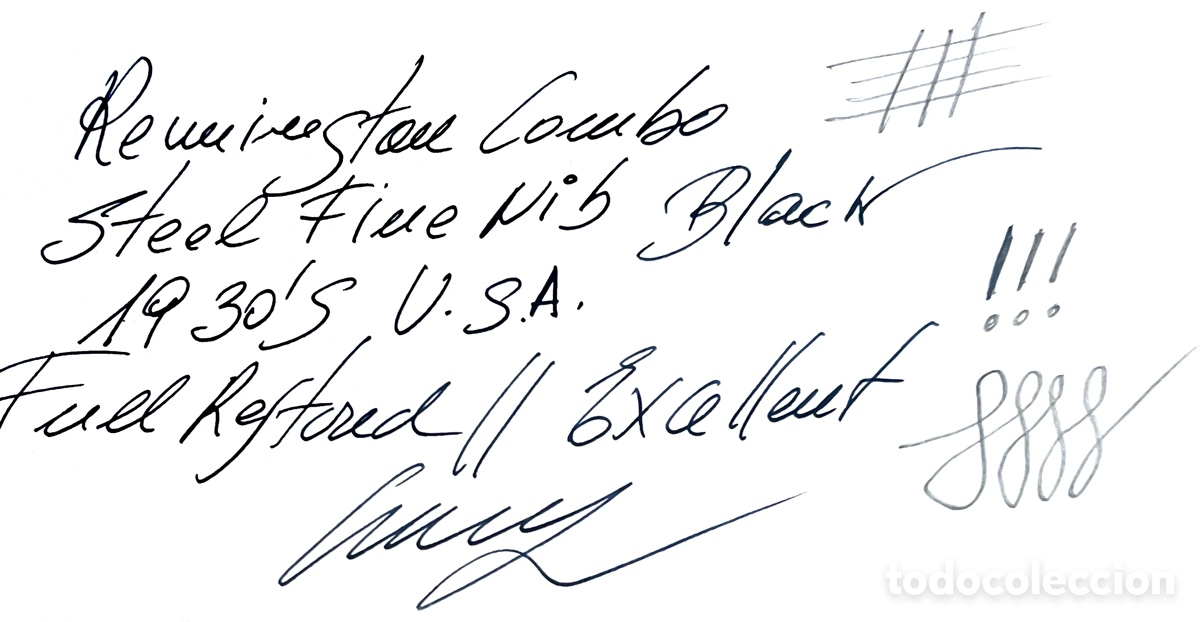 Remington Combo
Steel Fine Nib Black
1930's U.S.A.
!!!
Full Restored // Excellent
todocoleccion